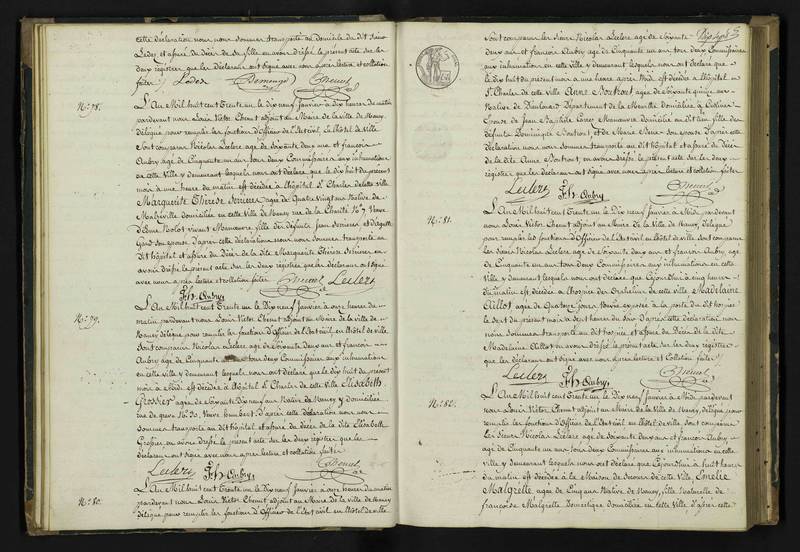 cette déclaration nous nous sommes transporté au domicile du dit Sieur
Leder et assuré du décès de sa fille en avons dressé le présent acte sur les
deux registres que les déclarans ont signé avec nous après lecture et collation
faites
N.° 78.
L'An Mil huit cent Trente un le Dix neuf Janvier à dix heures du matin
pardevant nous Louis Victor Chenut adjoint au Maire de la ville de Nancy
délégué pour remplir les fonctions d'Officier de l'Etat civil en l'hôtel de ville
sont comparus Nicolas Leclerc agé de soixante deux ans et françois
Aubry agé de Cinquante un ans tous deux Commissaires aux inhumations
en cette ville y demeurant lesquels nous ont déclaré que le dix huit du présent
mois à une heure du matin est décédée à l'hôpital St Charles de cette ville
Marguerite Thérèse agée de Quatre vingt ans Native de
domiciliée en cette Ville de Nancy rue de la Charité N.° 7 Veuve
vivant Manœuvre fille des défunts Jean et d'
son épouse. D'après cette déclaration nous nous sommes transporté au
Dit hôpital et assuré du décès de la dite Marguerite Thérèse en
avons dressé le présent acte sur les deux registres que les déclarans ont signé
avec nous après lecture et collation faites Leclerc
Fs Aubry
N.° 79.
L'An Mil huit cent Trente un le Dix neuf Janvier à onze heures du
matin pardevant nous Louis Victor Chenut adjoint au Maire de la ville de
Nancy délégué pour remplir les fonctions d'Officier de l'Etat civil en l'hôtel de ville
sont comparus Nicolas Leclerc agé de soixante deux ans et françois
Aubry agé de Cinquante un ans tous deux Commissaires aux inhumations
en cette ville y demeurant lesquels nous ont déclaré que le dix huit du présent
mois à Midi est décédée à l'hôpital St Charles de cette ville Elisabeth
Grossier agée de soixante Dix neuf ans Native de Nancy y domiciliée
rue de Grève N.° 30, Veuve D'après cette déclaration nous nous
sommes transporté au dit hôpital et assuré du décès de la dite Elisabeth
Grossier en avons dressé le présent acte sur les deux registres que les
déclarans ont signé avec nous après lecture et collation faites
Leclerc Fs Aubry
N.° 80.
L'An Mil huit cent Trente un le Dix neuf Janvier à onze heures du matin
pardevant nous Louis Victor Chenut adjoint au Maire de la ville de Nancy
délégué pour remplir les fonctions d'Officier de l'Etat civil en l'hôtel de ville
sont comparus les sieurs Nicolas Leclerc agé de soixante
deux ans et françois Aubry agé de Cinquante un ans tous deux Commissaires
aux inhumations en cette ville y demeurant lesquels nous ont déclaré que
le dix huit du présent mois à une heure après Midi est décédée à l'hôpital
St Charles de cette ville Anne agée de soixante quinze ans
Native de Dieulouard Département de la Meurthe domiciliée à
Epouse de Jean Baptiste Manœuvre domicilié au dit lieu fille des
défunts Dominique et de Marie son épouse D'après cette
déclaration nous nous sommes transporté au dit hôpital et assuré du décès
de la dite Anne en avons dressé le présent acte sur les deux
registres que les déclarans ont signé avec nous après lecture et collation faites
Leclerc Fs Aubry
N.° 81.
L'An Mil huit cent Trente un le Dix neuf Janvier à Midi pardevant
nous Louis Victor Chenut adjoint au Maire de la Ville de Nancy, délégué
pour remplir les fonctions d'Officier de l'Etat civil en l'hôtel de ville sont comparus
les sieurs Nicolas Leclerc agé de soixante deux ans et françois Aubry agé
de Cinquante un ans tous deux Commissaires aux inhumations en cette
Ville y demeurant lesquels nous ont déclaré que Cejourd'hui à cinq heures
du matin est décédée à l'hospice des Orphelins de cette ville Madelaine
Aillot agée de Quatorze jours trouvée exposée à la porte du dit hospice
le sept du présent mois à sept heures du soir D'après cette déclaration nous
nous sommes transporté au dit hospice et assuré du Décès de la dite
Madelaine Aillot en avons dressé le présent acte sur les deux registres
que les déclarans ont signé avec nous après lecture et Collation faites
Leclerc Fs Aubry
N.° 82.
L'An Mil huit cent Trente un le Dix neuf Janvier à Midi pardevant
nous Louis Victor Chenut adjoint au Maire de la Ville de Nancy, délégué pour
remplir les fonctions d'Officier de l'Etat civil en l'hôtel de ville, sont comparus
les sieurs Nicolas Leclerc agé de soixante deux ans et françois Aubry
agé de Cinquante un ans tous deux Commissaires aux inhumations en cette
ville y demeurant lesquels nous ont déclaré que Cejourd'hui à huit heures
du matin est décédée à la Maison de Secours de cette Ville, Emélie
Malgrelle agée de Cinq ans Native de Nancy, fille Naturelle de
françoise Malgrelle domestique domiciliée en cette Ville D'après cette